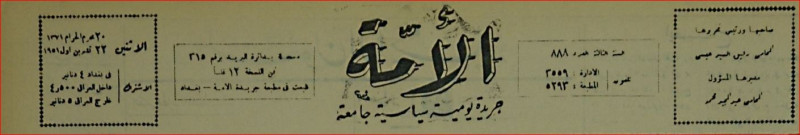 صاحبها ورئيس تحريرها
المحامي رفيق السيد عيسى
مديرها المسؤول
المحامي عبد المجيد محمد
السنة الثالثة العدد ٨٨٨
تلفون
الادارة : ٣٥٥٩
المطبعة : ٥٢٩٣
الأمة
جريدة يومية سياسية جامعة
مسجلة بدائرة البريد برقم ٣٦٥
ثمن النسخة ١٢ فلساً
طبعت في مطبعة جريدة الأمة - بغداد
الاثنين
٢٠ محرم الحرام ١٣٧١
٢٢ تشرين اول ١٩٥١
الاشتراك
في بغداد ٤ دنانير
داخل العراق ٥٠٠ر٤
خارج العراق ٥ دنانير